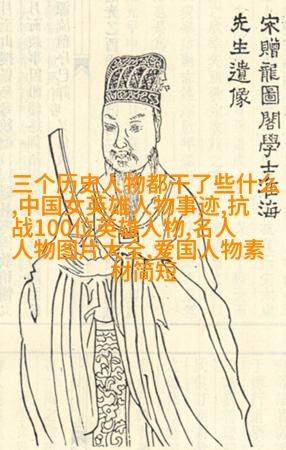 宋贈龍圖閣學士海
先生遺像
三个历史人物都干了些什么
,中国女英雄人物事迹,抗
战100位英雄人物,名人
人物图片大全,爱国人物素
材简短